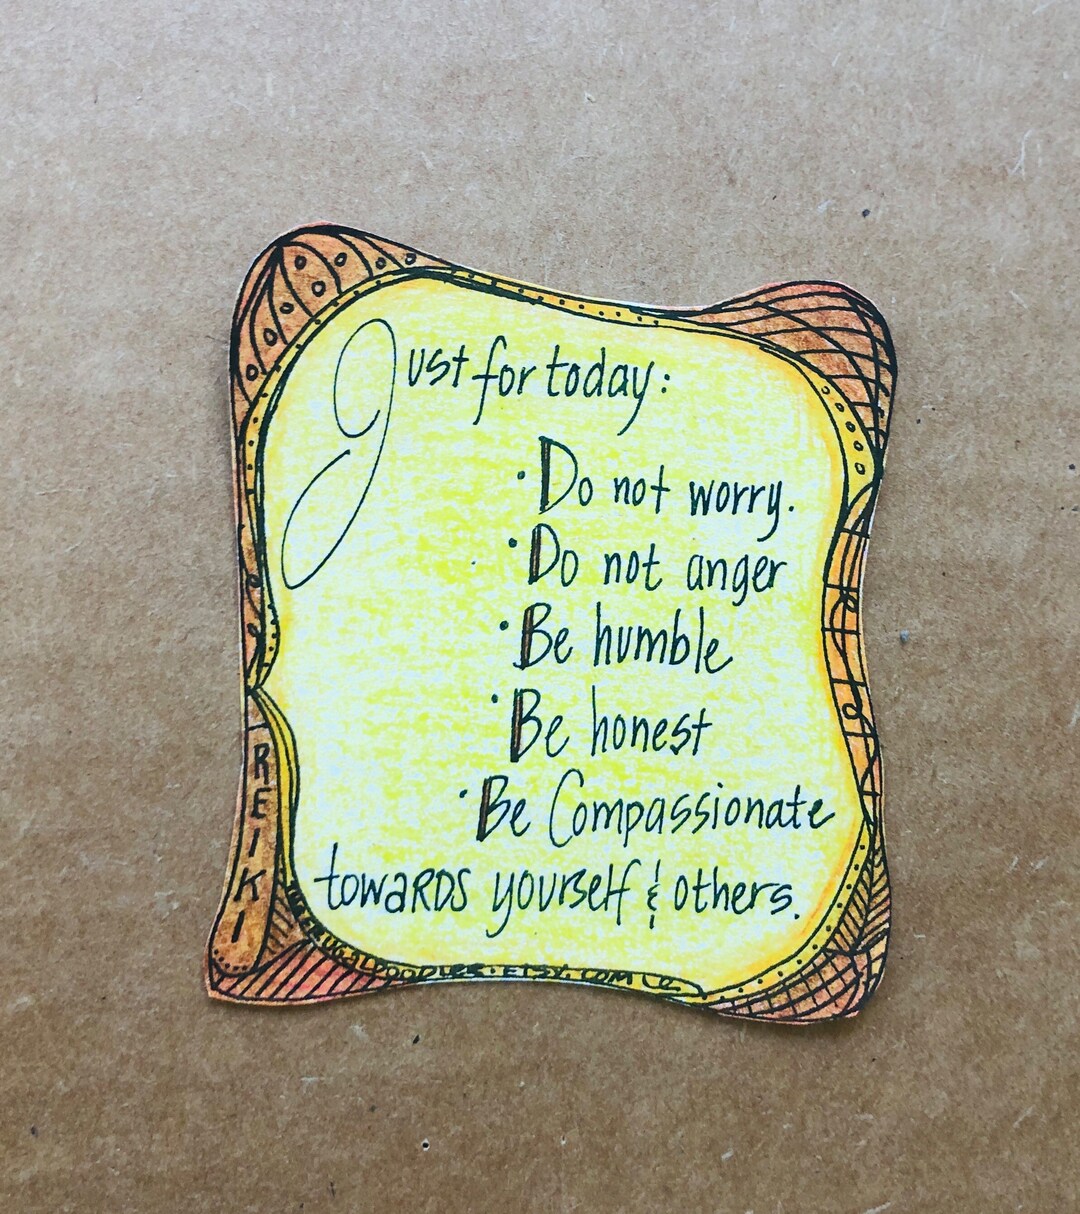 Just for today:
· Do not worry.
· Do not anger
· Be humble
· Be honest
· Be Compassionate
towards yourself & others.
REIKI
ETSY.COM